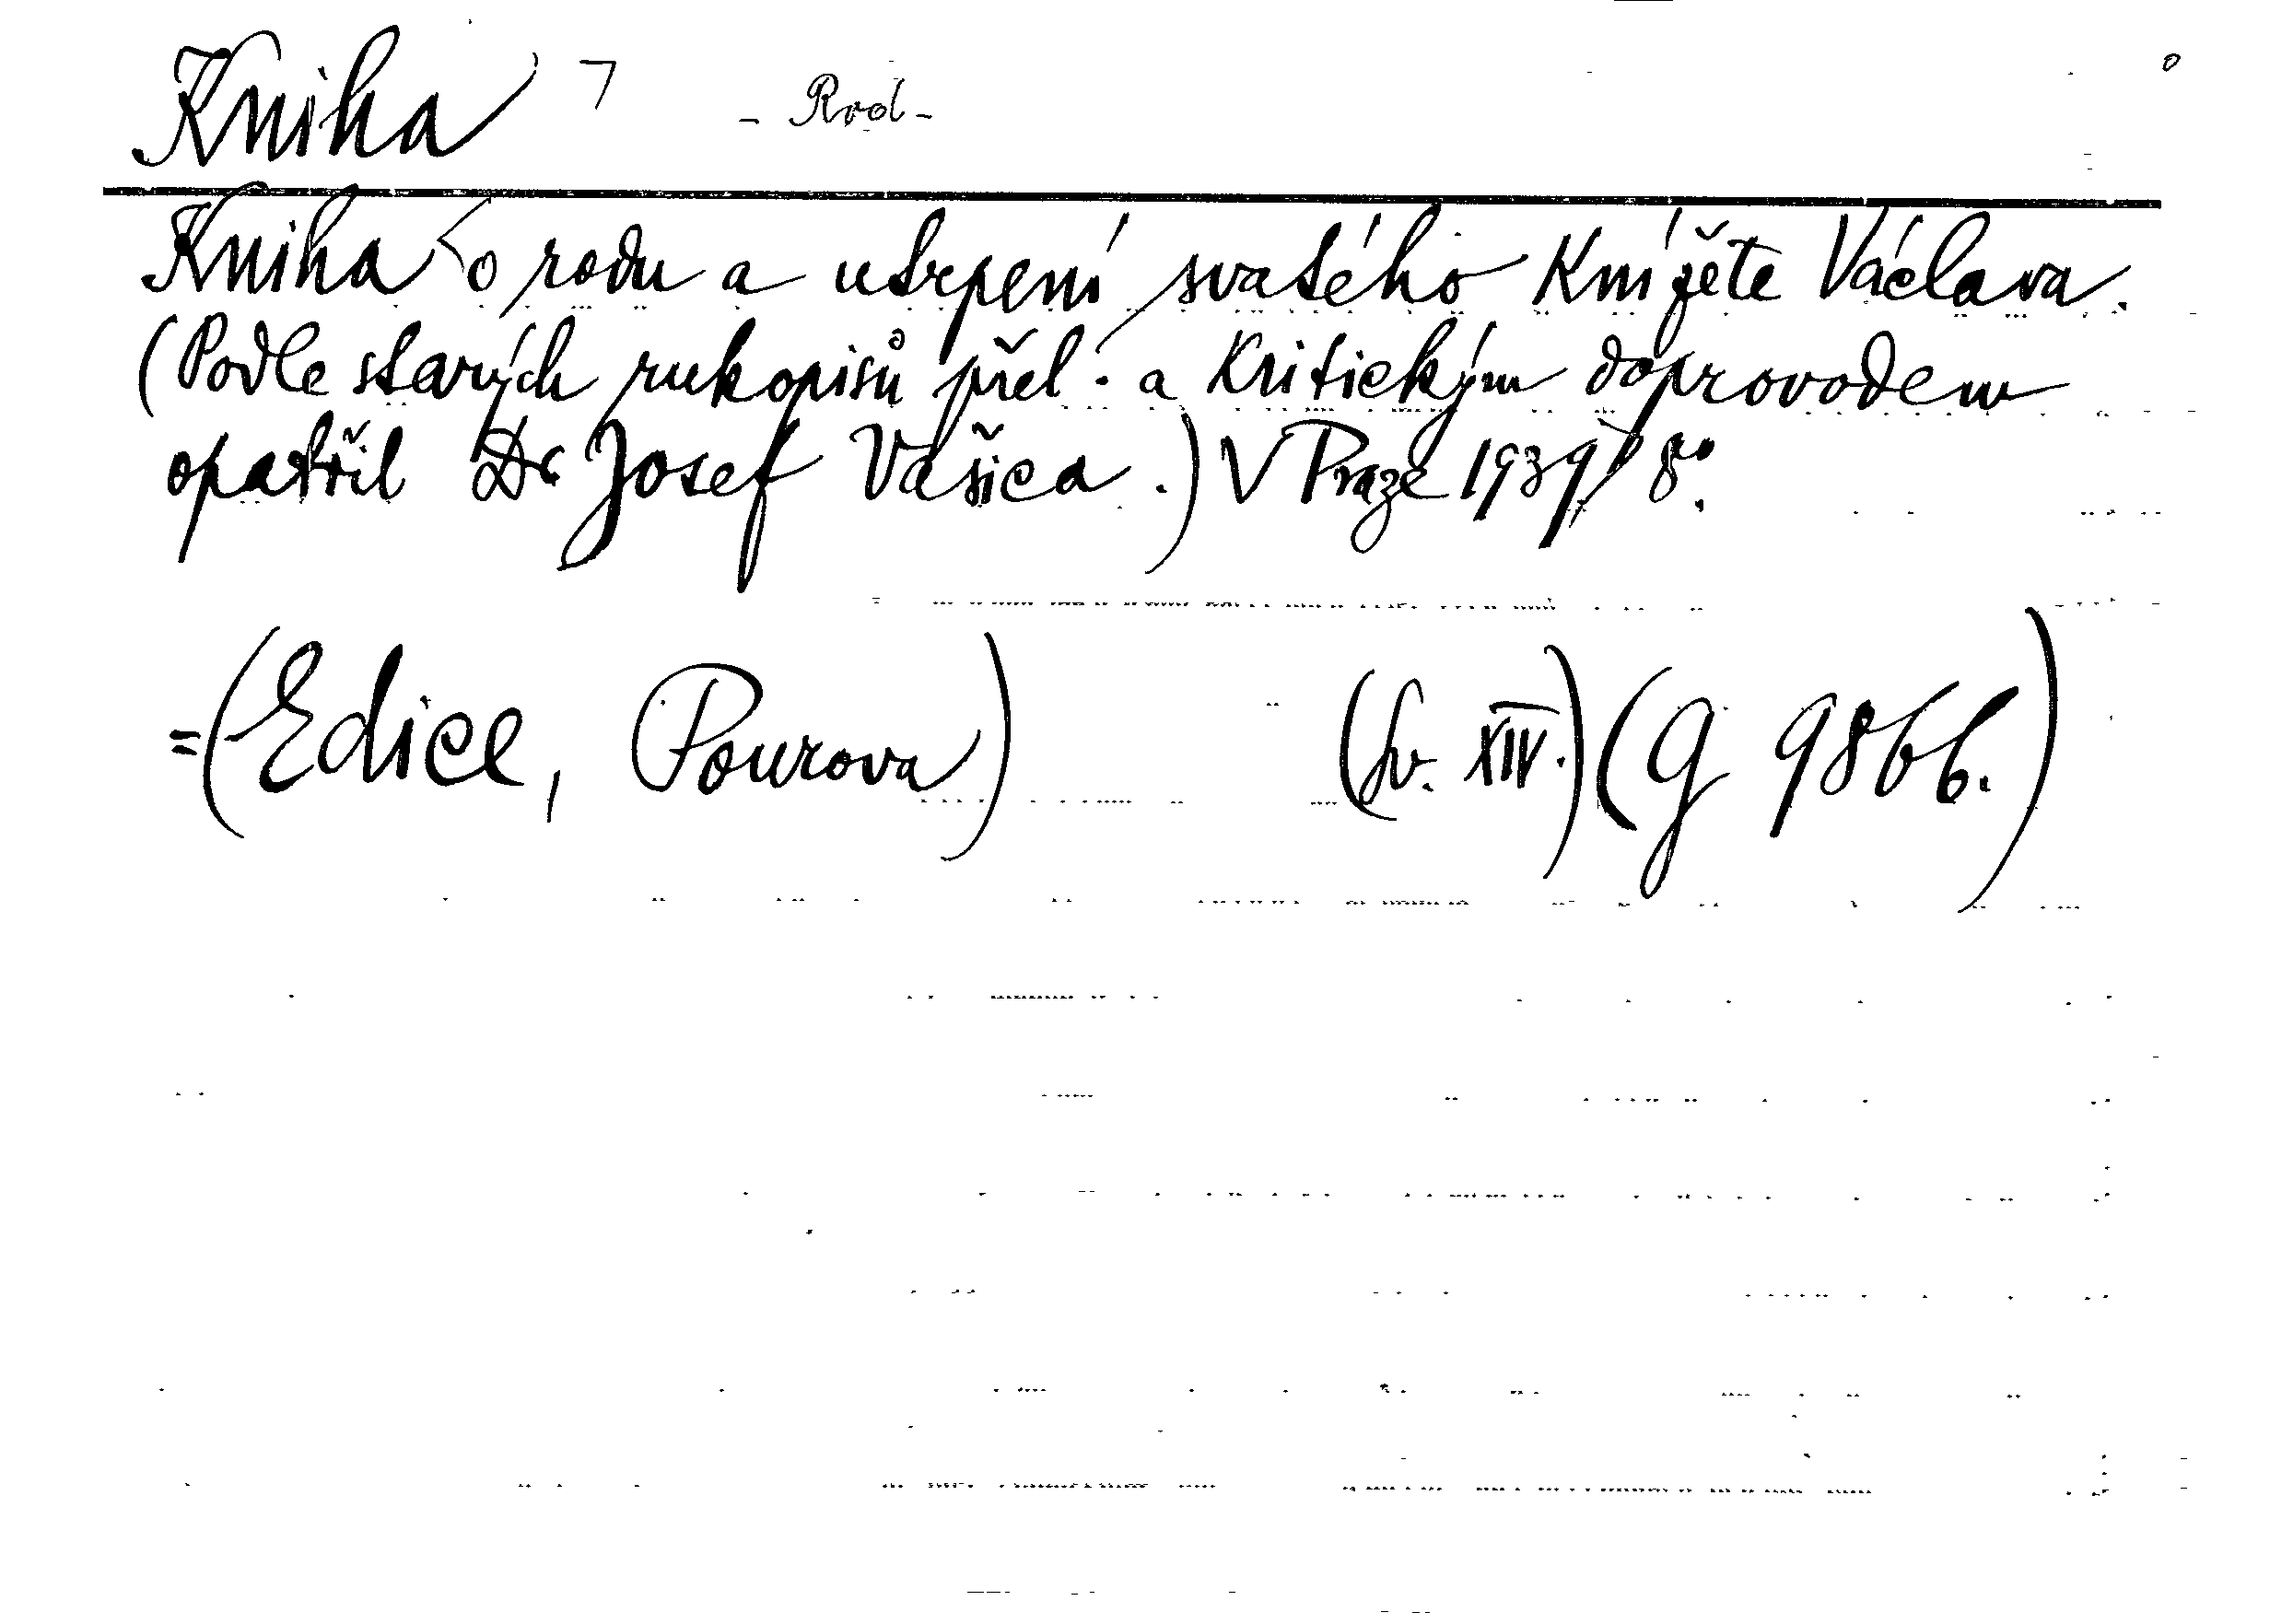 Kniha ⁊ - Rod -
Kniha o rodu a utrpení svatého Knížete Václava.
(Podle starých rukopisů přel. a Kritickým doprovodem
opatřil Dr Josef Vašica.) V Praze 1939 8°.
=(Edice, Pourova) (Sv. XIV.) (G 986b.)